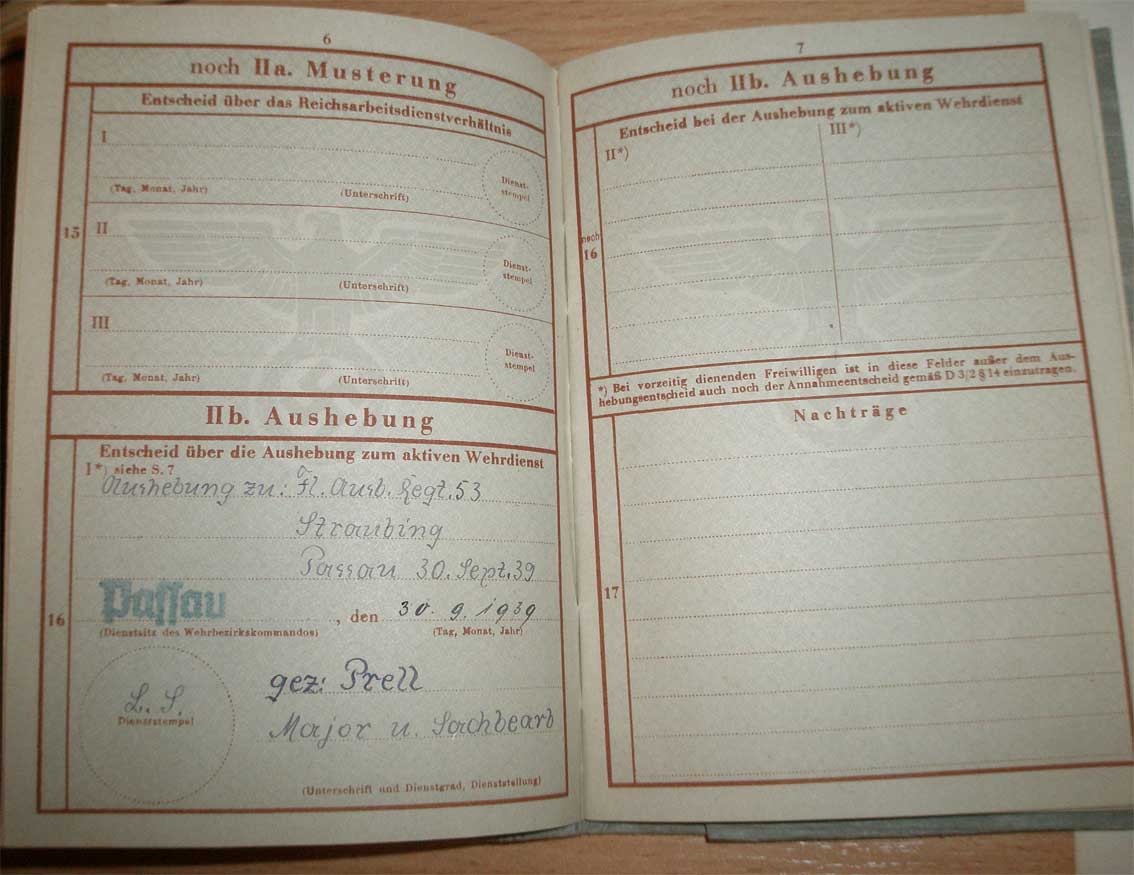 6
noch IIa. Musterung
Entscheid über das Reichsarbeitsdienstverhältnis
15
I
(Tag, Monat, Jahr) (Unterschrift)
Dienst-
stempel
II
(Tag, Monat, Jahr) (Unterschrift)
Dienst-
stempel
III
(Tag, Monat, Jahr) (Unterschrift)
Dienst-
stempel
IIb. Aushebung
Entscheid über die Aushebung zum aktiven Wehrdienst
I*) siehe S. 7
Aushebung zu: Fl. Ausb. Regt. 53
Straubing
Passau 30. Sept. 39
16
Passau , den 30. 9. 1939
(Dienstsitz des Wehrbezirkskommandos) (Tag, Monat, Jahr)
L. S.
Dienststempel
gez: Prell
Major u. Sachbearb
(Unterschrift und Dienstgrad, Dienststellung)
7
noch IIb. Aushebung
Entscheid bei der Aushebung zum aktiven Wehrdienst
II*) III*)
noch
16
*) Bei vorzeitig dienenden Freiwilligen ist in diese Felder außer dem Aus-
hebungsentscheid auch noch der Annahmeentscheid gemäß D 3/2 § 14 einzutragen.
Nachträge
17